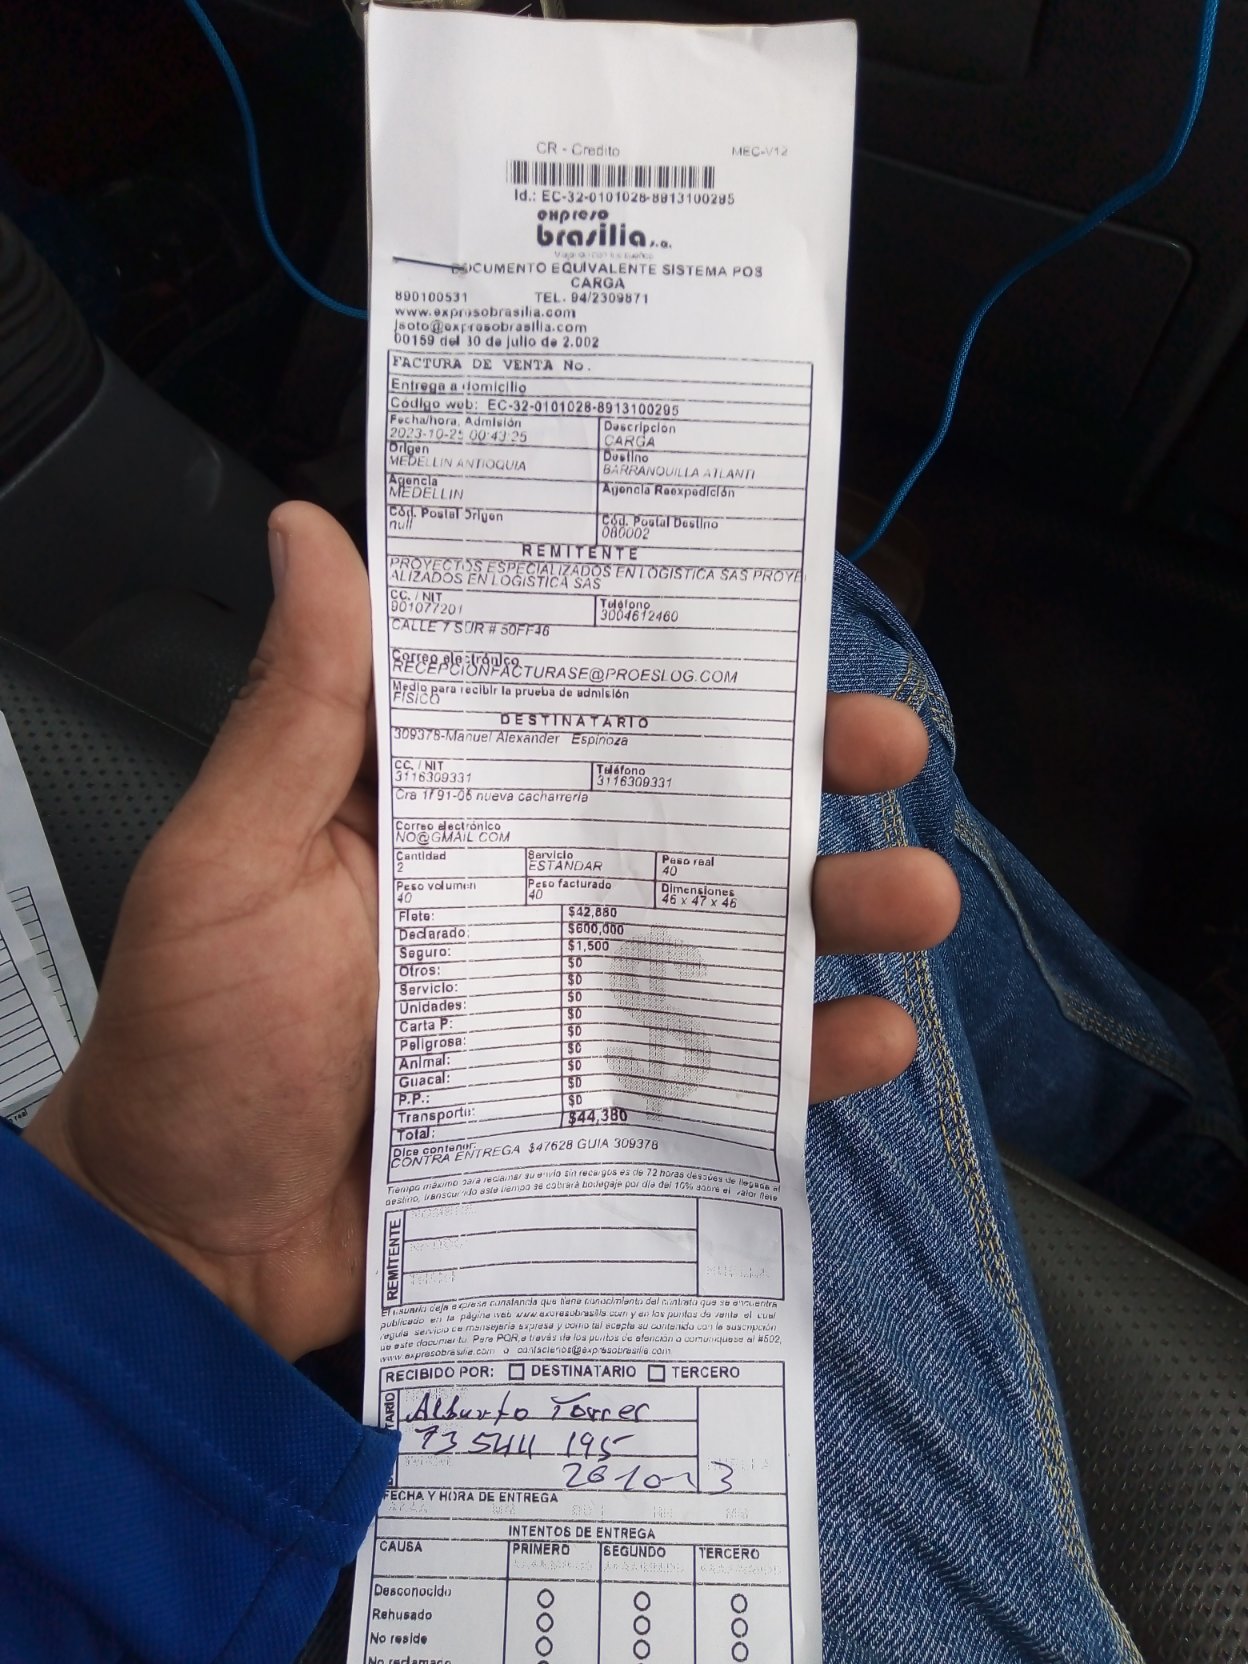 CR - Credito MEC-V12
Id.: EC-32-0101028-8913100295
expreso
brasilia s.a.
DOCUMENTO EQUIVALENTE SISTEMA POS
CARGA
890100531 TEL. 94/2309871
www.expresobrasilia.com
jsoto@expresobrasilia.com
00159 del 30 de julio de 2.002
FACTURA DE VENTA No.
Entrega a domicilio
Código web: EC-32-0101028-8913100295
Fecha/hora, Admisión Descripción
2023-10-25 00:43:25 CARGA
Origen Destino
MEDELLIN ANTIOQUIA BARRANQUILLA ATLANTI
Agencia Agencia Reexpedición
MEDELLIN
Cód. Postal Origen Cód. Postal Destino
null 080002
REMITENTE
PROYECTOS ESPECIALIZADOS EN LOGISTICA SAS PROYE
ALIZADOS EN LOGISTICA SAS
CC. / NIT Teléfono
901077201 3004612460
CALLE 7 SUR # 50FF46
Correo electrónico
RECEPCIONFACTURASE@PROESLOG.COM
Medio para recibir la prueba de admisión
FISICO
DESTINATARIO
309378-Manuel Alexander Espinoza
CC. / NIT Teléfono
3116309331 3116309331
Cra 1f 91-06 nueva cacharreria
Correo electrónico
NO@GMAIL.COM
Cantidad Servicio Peso real
2 ESTANDAR 40
Peso volumen Peso facturado Dimensiones
40 40 46 x 47 x 46
Flete: $42,880
Declarado: $600,000
Seguro: $1,500
Otros: $0
Servicio: $0
Unidades: $0
Carta P: $0
Peligrosa: $0
Animal: $0
Guacal: $0
P.P.: $0
Transporte: $0
Total: $44,380
Dice contener:
CONTRA ENTREGA $47628 GUIA 309378
Tiempo máximo para reclamar su envío sin recargos es de 72 horas después de llegada al
destino, transcurrido este tiempo se cobrará bodegaje por día del 10% sobre el valor flete
REMITENTE
El usuario deja expresa constancia que tiene conocimiento del contrato que se encuentra
publicado en la página web www.expresobrasilia.com y en los puntos de venta, el cual
regula servicio de mensajería expresa y como tal acepta su contenido con la suscripción
de este documento. Para PQR,a través de los puntos de atención o comuníquese al #502,
www.expresobrasilia.com o contactenos@expresobrasilia.com
RECIBIDO POR: DESTINATARIO TERCERO
Alberto Torres
195
FECHA Y HORA DE ENTREGA
INTENTOS DE ENTREGA
CAUSA PRIMERO SEGUNDO TERCERO
Desconocido
Rehusado
No reside
No reclamado